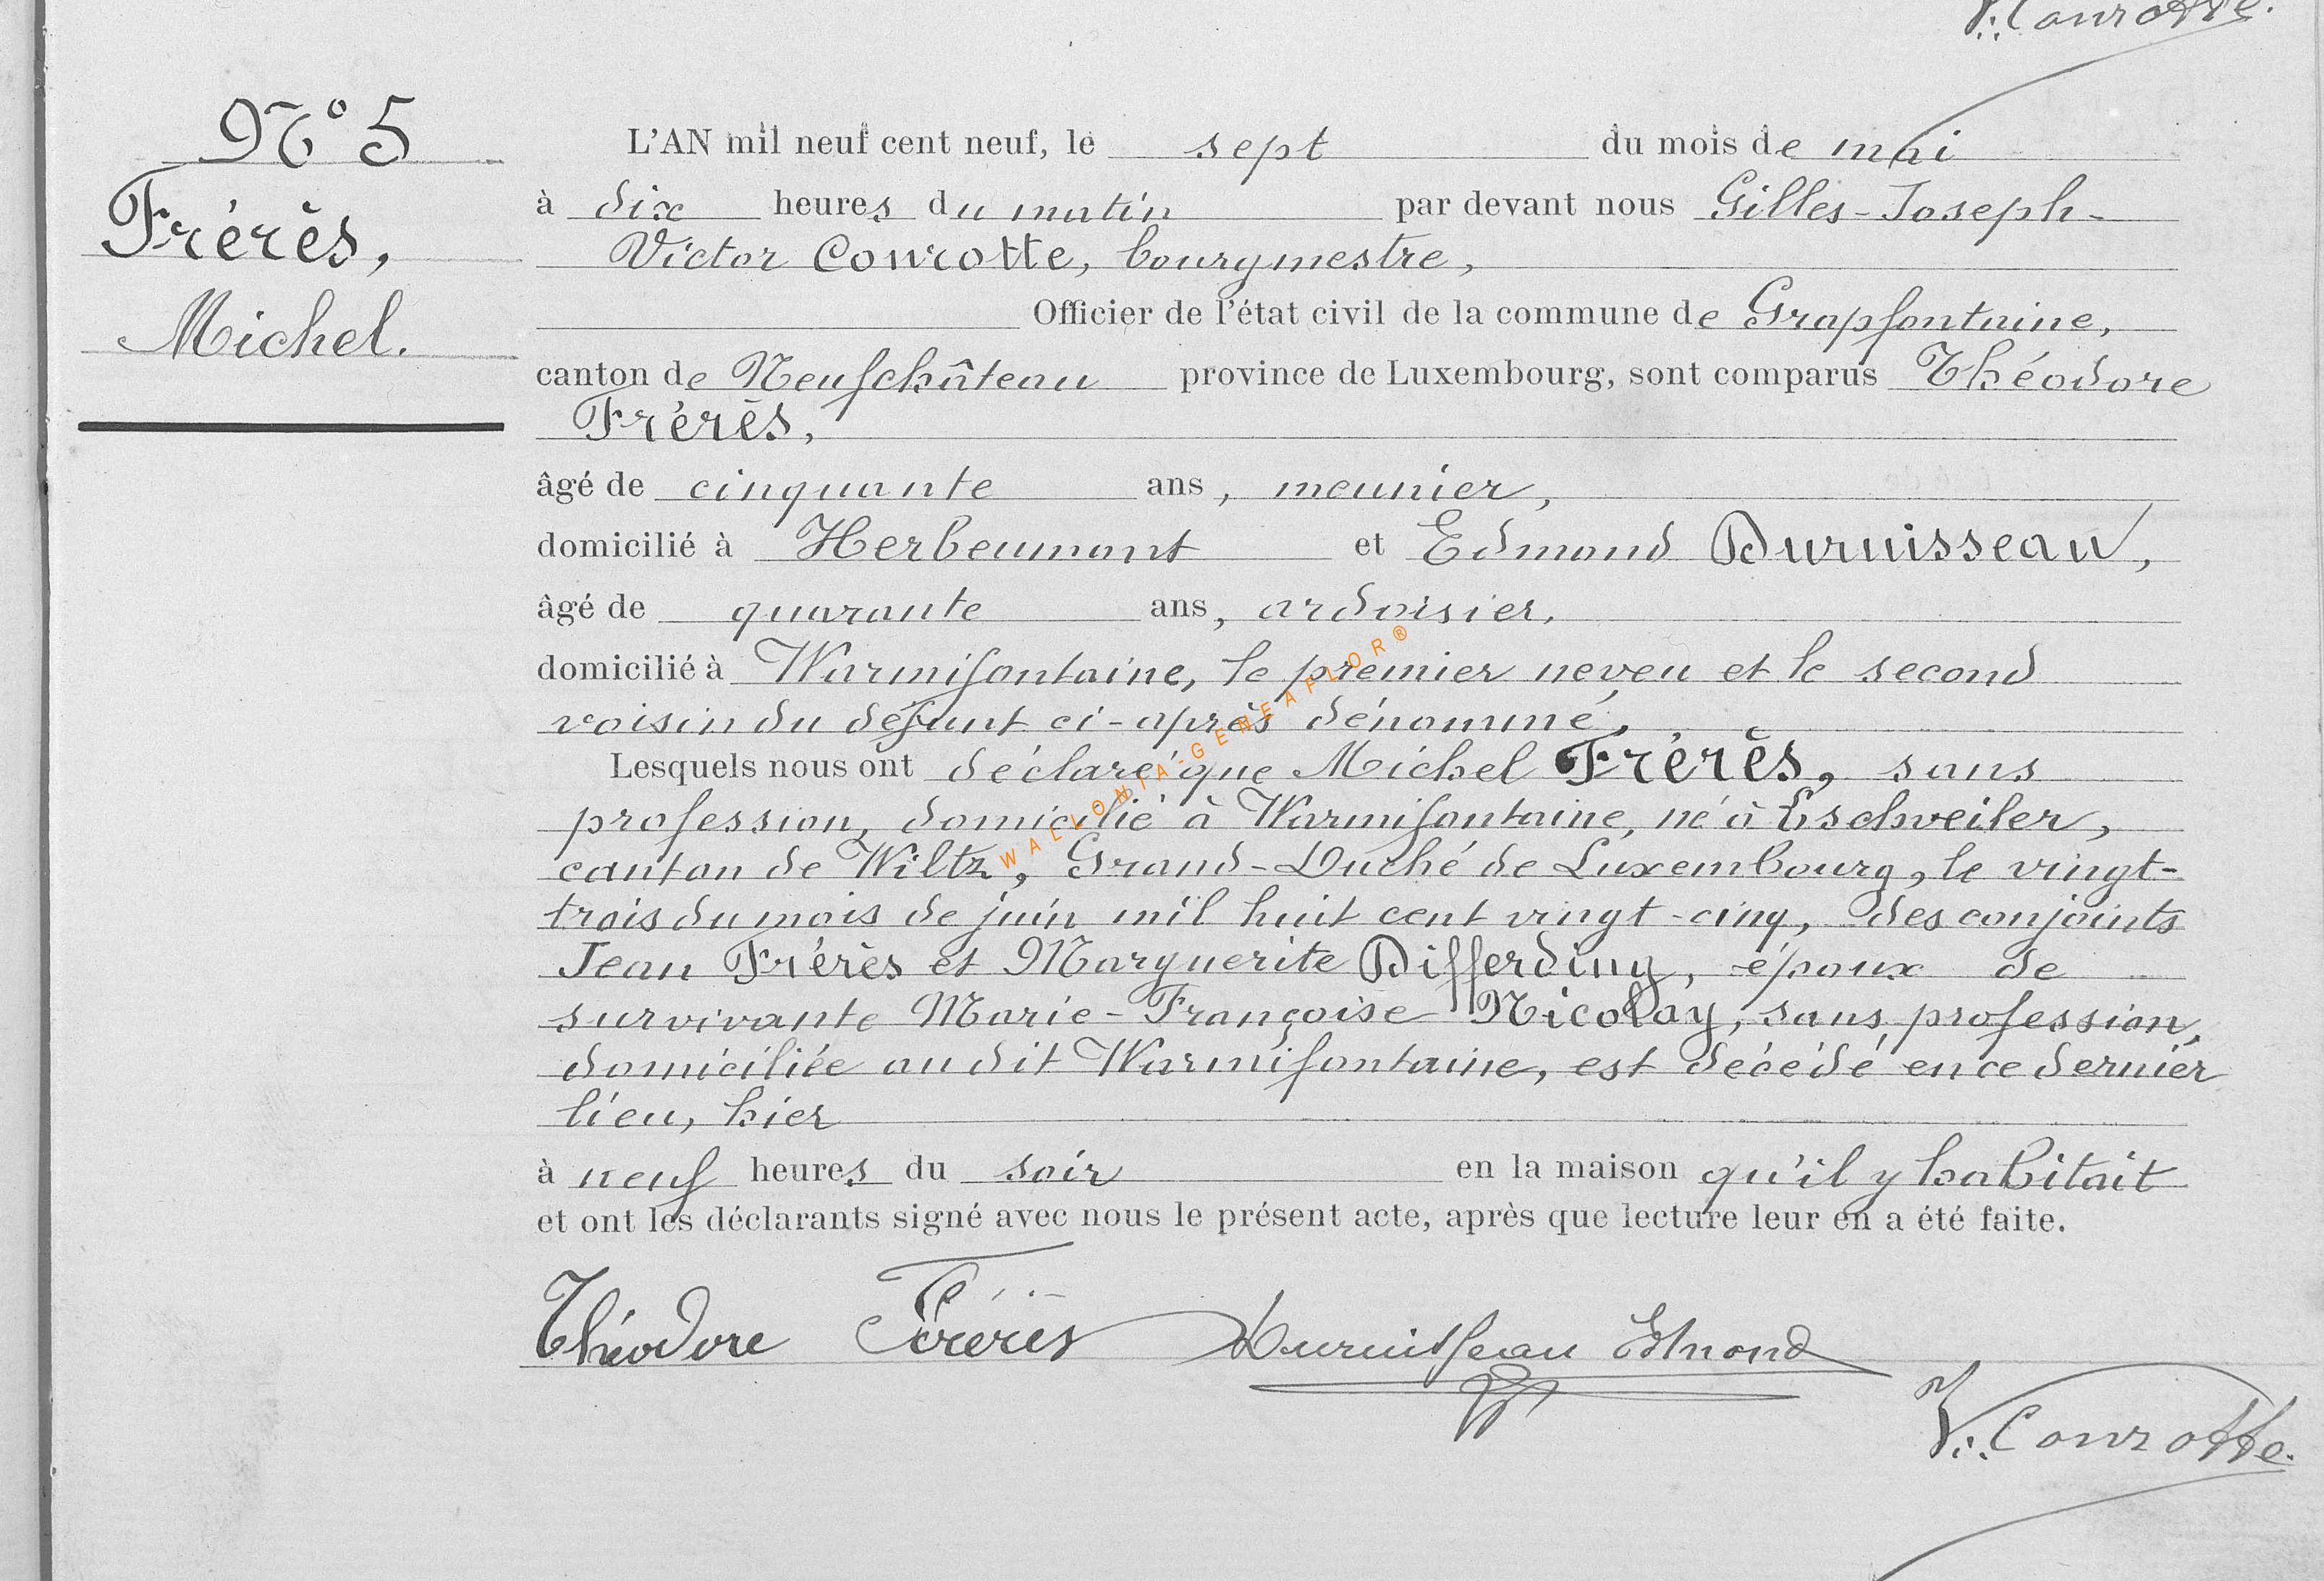 V. Conrotte.
N° 5
Frérès,
Michel.
L'AN mil neuf cent neuf, le sept du mois de mai
à dix heures du matin par devant nous Gilles-Joseph-
Victor Conrotte, bourgmestre,
Officier de l'état civil de la commune de Grapfontaine,
canton de Neufchâteau province de Luxembourg, sont comparus Théodore
Frérès,
âgé de cinquante ans, meunier,
domicilié à Herbeumont et Edmond Duruisseau,
âgé de quarante ans, ardoisier,
domicilié à Warmifontaine, le premier neveu et le second
voisin du défunt ci-après dénommé,
Lesquels nous ont déclaré que Michel Frérès, sans
profession, domicilié à Warmifontaine, né à Eschweiler,
canton de Wiltz, Grand-Duché de Luxembourg, le vingt-
trois du mois de juin mil huit cent vingt-cinq, des conjoints
Jean Frérès et Marguerite Differding, époux de
survivante Marie-Françoise Nicolay, sans profession,
domiciliée au dit Warmifontaine, est décédé en ce dernier
lieu, hier
à neuf heures du soir en la maison qu'il y habitait
et ont les déclarants signé avec nous le présent acte, après que lecture leur en a été faite.
Théodore Frérès Duruisseau Edmond
V. Conrotte.
WALLONIA-GENEAFLOR®